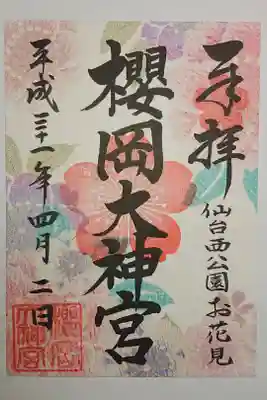 奉拝
仙台西公園お花見
櫻岡大神宮
平成三十一年四月二日
櫻岡大神宮